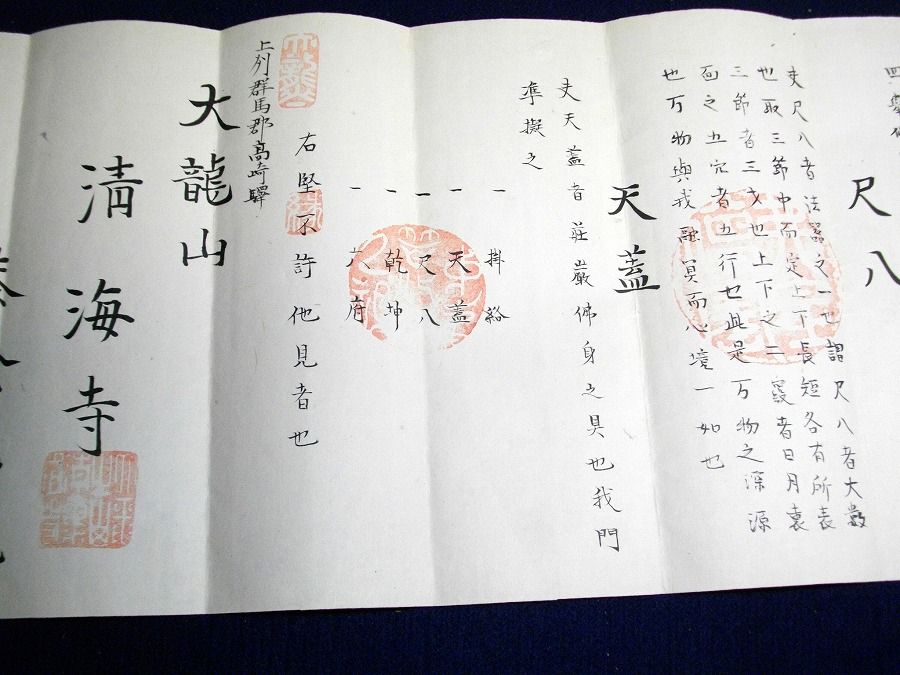 尺八
夫尺八者法器之一也謂尺八者大數
也取三節中而定上下長短各有所表
三節者三才也上下之二竅者日月裏
面之五穴者五行也此是万物之深源
也万物與我融冥而心境一如也
天蓋
夫天蓋者莊嚴佛身之具也我門
準擬之
一 掛絡
一 天蓋
一 尺八
一 乾坤
一 六府
右堅不許他見者也
上列群馬郡高崎驛
大龍山
清海寺